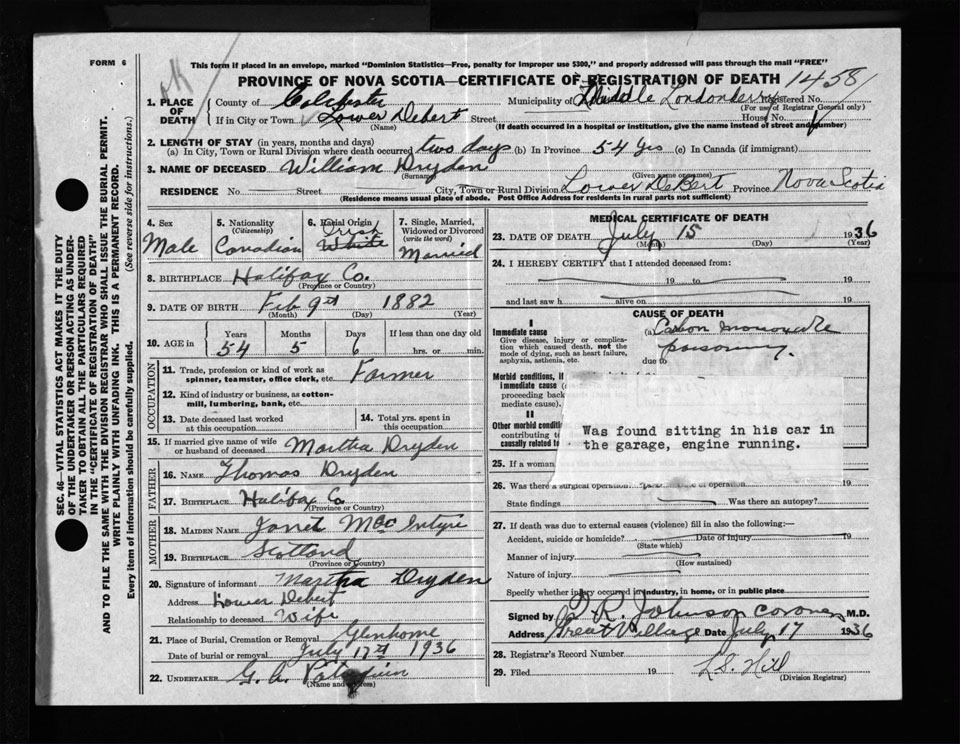 FORM 6
This form if placed in an envelope, marked "Dominion Statistics—Free, penalty for improper use $300," and properly addressed will pass through the mail "FREE"
PROVINCE OF NOVA SCOTIA—CERTIFICATE OF REGISTRATION OF DEATH 1458
1. PLACE OF DEATH County of Colchester Municipality of Middle Londonderry Registered No.
(For use of Registrar General only)
If in City or Town Lower Debert Street House No.
(Name) (If death occurred in a hospital or institution, give the name instead of street and number)
2. LENGTH OF STAY (in years, months and days)
(a) In City, Town or Rural Division where death occurred two days (b) In Province 54 yrs (c) In Canada (if immigrant)
3. NAME OF DECEASED William Dryden
(Surname) (Given name or names)
RESIDENCE No. Street City, Town or Rural Division Lower DeBert Province Nova Scotia
(Residence means usual place of abode. Post Office Address for residents in rural parts not sufficient)
4. Sex Male
5. Nationality (Citizenship) Canadian
6. Racial Origin Irish White
7. Single, Married, Widowed or Divorced (write the word) Married
8. BIRTHPLACE Halifax Co.
(Province or Country)
9. DATE OF BIRTH Feb 9th 1882
(Month) (Day) (Year)
10. AGE in Years 54 Months 5 Days 6 If less than one day old hrs. or min.
OCCUPATION
11. Trade, profession or kind of work as spinner, teamster, office clerk, etc. Farmer
12. Kind of industry or business, as cotton-mill, lumbering, bank, etc.
13. Date deceased last worked at this occupation
14. Total yrs. spent in this occupation
15. If married give name of wife or husband of deceased Martha Dryden
FATHER
16. NAME Thomas Dryden
17. BIRTHPLACE Halifax Co
(Province or Country)
MOTHER
18. MAIDEN NAME Janet MacIntyre
19. BIRTHPLACE Scotland
(Province or Country)
20. Signature of informant Martha Dryden
Address Lower Debert
Relationship to deceased Wife
21. Place of Burial, Cremation or Removal Glenholme
Date of burial or removal July 17th 1936
22. UNDERTAKER G. A.
(Name and address)
MEDICAL CERTIFICATE OF DEATH
23. DATE OF DEATH July 15 1936
(Month) (Day) (Year)
24. I HEREBY CERTIFY that I attended deceased from:
19 to 19
and last saw h alive on 19
CAUSE OF DEATH
I
Immediate cause Carbon monoxide
Give disease, injury or complication which caused death, not the mode of dying, such as heart failure, asphyxia, asthenia, etc. poisoning.
due to
Morbid conditions, if
immediate cause (
proceeding back
mediate cause).
II
Other morbid conditi
contributing to
causally related to
Was found sitting in his car in
the garage, engine running.
25. If a woman
26. Was there a surgical operation of operation 19
State findings Was there an autopsy?
27. If death was due to external causes (violence) fill in also the following:—
Accident, suicide or homicide? Date of injury 19
(State which)
Manner of injury
(How sustained)
Nature of injury
Specify whether injury occurred in industry, in home, or in public place
Signed by T. R. Johnson coroner M.D.
Address Great Village Date July 17 1936
28. Registrar's Record Number
29. Filed 19 L.S. Hill
(Division Registrar)
SEC. 46—VITAL STATISTICS ACT MAKES IT THE DUTY
OF THE UNDERTAKER OR PERSON ACTING AS UNDER-
TAKER TO OBTAIN ALL THE PARTICULARS REQUIRED
IN THE "CERTIFICATE OF REGISTRATION OF DEATH"
AND TO FILE THE SAME WITH THE DIVISION REGISTRAR WHO SHALL ISSUE THE BURIAL PERMIT.
WRITE PLAINLY WITH UNFADING INK. THIS IS A PERMANENT RECORD.
Every item of information should be carefully supplied. (See reverse side for instructions.)